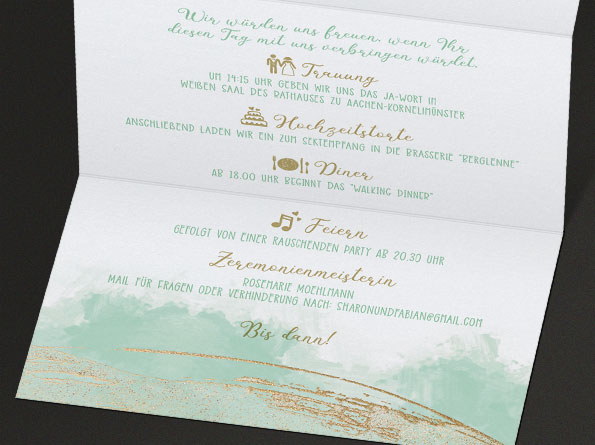 Wir würden uns freuen, wenn Ihr
diesen Tag mit uns verbringen würdet.
Trauung
UM 14:15 UHR GEBEN WIR UNS DAS JA-WORT IN
WEIẞEN SAAL DES RATHAUSES ZU AACHEN-KORNELIMÜNSTER
Hochzeitstorte
ANSCHLIEẞEND LADEN WIR EIN ZUM SEKTEMPFANG IN DIE BRASSERIE "BERGLENNE"
Diner
AB 18.00 UHR BEGINNT DAS "WALKING DINNER"
Feiern
GEFOLGT VON EINER RAUSCHENDEN PARTY AB 20.30 UHR
Zeremonienmeisterin
ROSEMARIE MOEHLMANN
MAIL FÜR FRAGEN ODER VERHINDERUNG NACH: SHARONUNDFABIAN@GMAIL.COM
Bis dann!